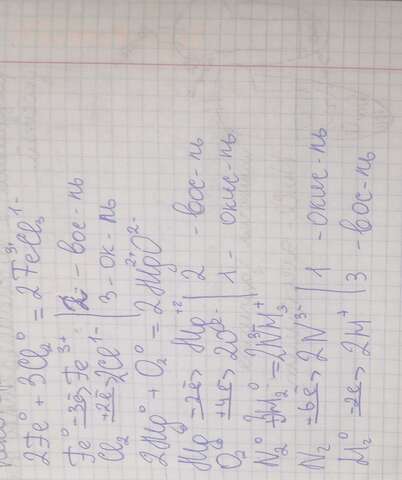 2Fe⁰ + 3Cl₂⁰ = 2Fe³⁺Cl₃¹⁻
Fe⁰ -3ē> Fe³⁺ | 2 - вос-ль
Cl₂⁰ +2ē> 2Cl¹⁻ | 3 - ок-ль
2Hg⁰ + O₂⁰ = 2Hg²⁺O²⁻
Hg⁰ -2ē> Hg⁺² | 2 - вос-ль
O₂⁰ +4ē> 2O²⁻ | 1 - окис-ль
N₂⁰ + 3H₂⁰ = 2N³⁻H₃⁺
N₂ +6ē> 2N³⁻ | 1 - окис-ль
H₂⁰ -2ē> 2H⁺ | 3 - вос-ль